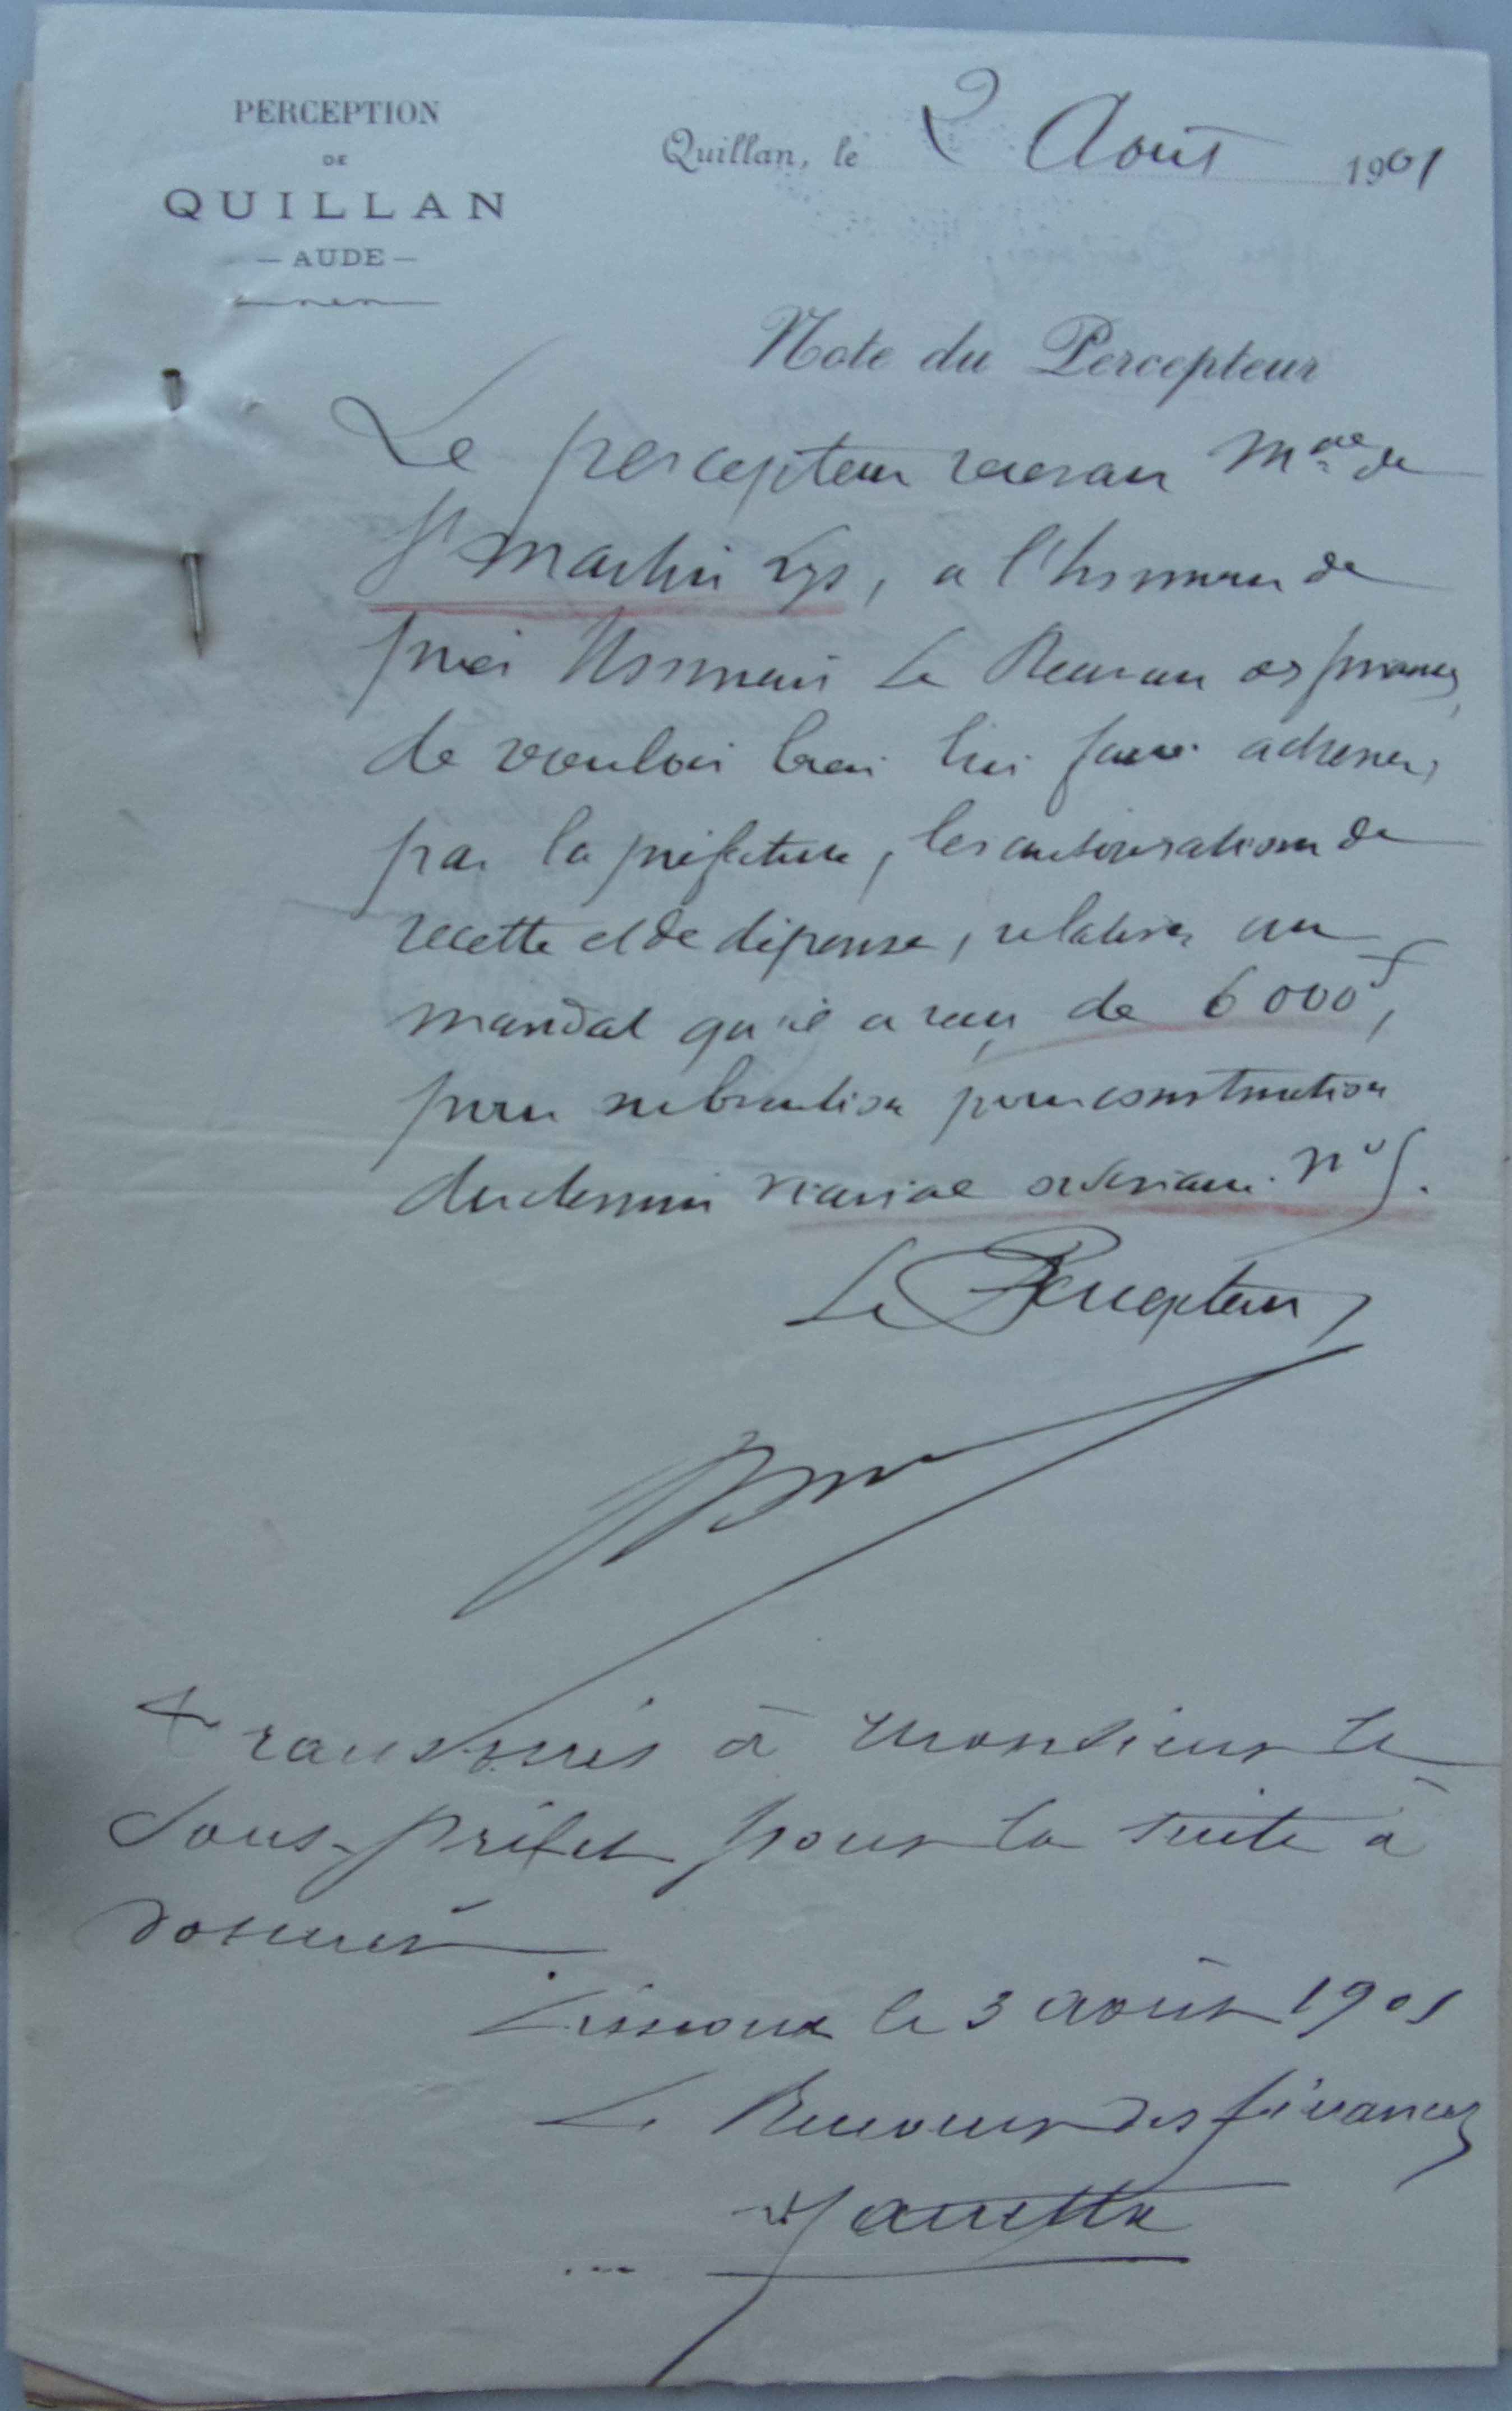 PERCEPTION
DE
QUILLAN
— AUDE —
Quillan, le 2 Aout 1901
Note du Percepteur
Le percepteur receveur Mal de
St Martin Lys, a l'honneur de
prier Monsieur Le Receveur des finances,
de vouloir bien lui faire adresser,
par la préfecture, les autorisations de
recette et de dépense, relatives au
mandat qu'il a reçu de 6000f,
pour subvention pour construction
du chemin vicinal ordinaire no 5.
Le Percepteur,
Transmis à Monsieur le
Sous-préfet pour la suite à
donner
Limoux le 3 août 1901
Le Receveur des finances